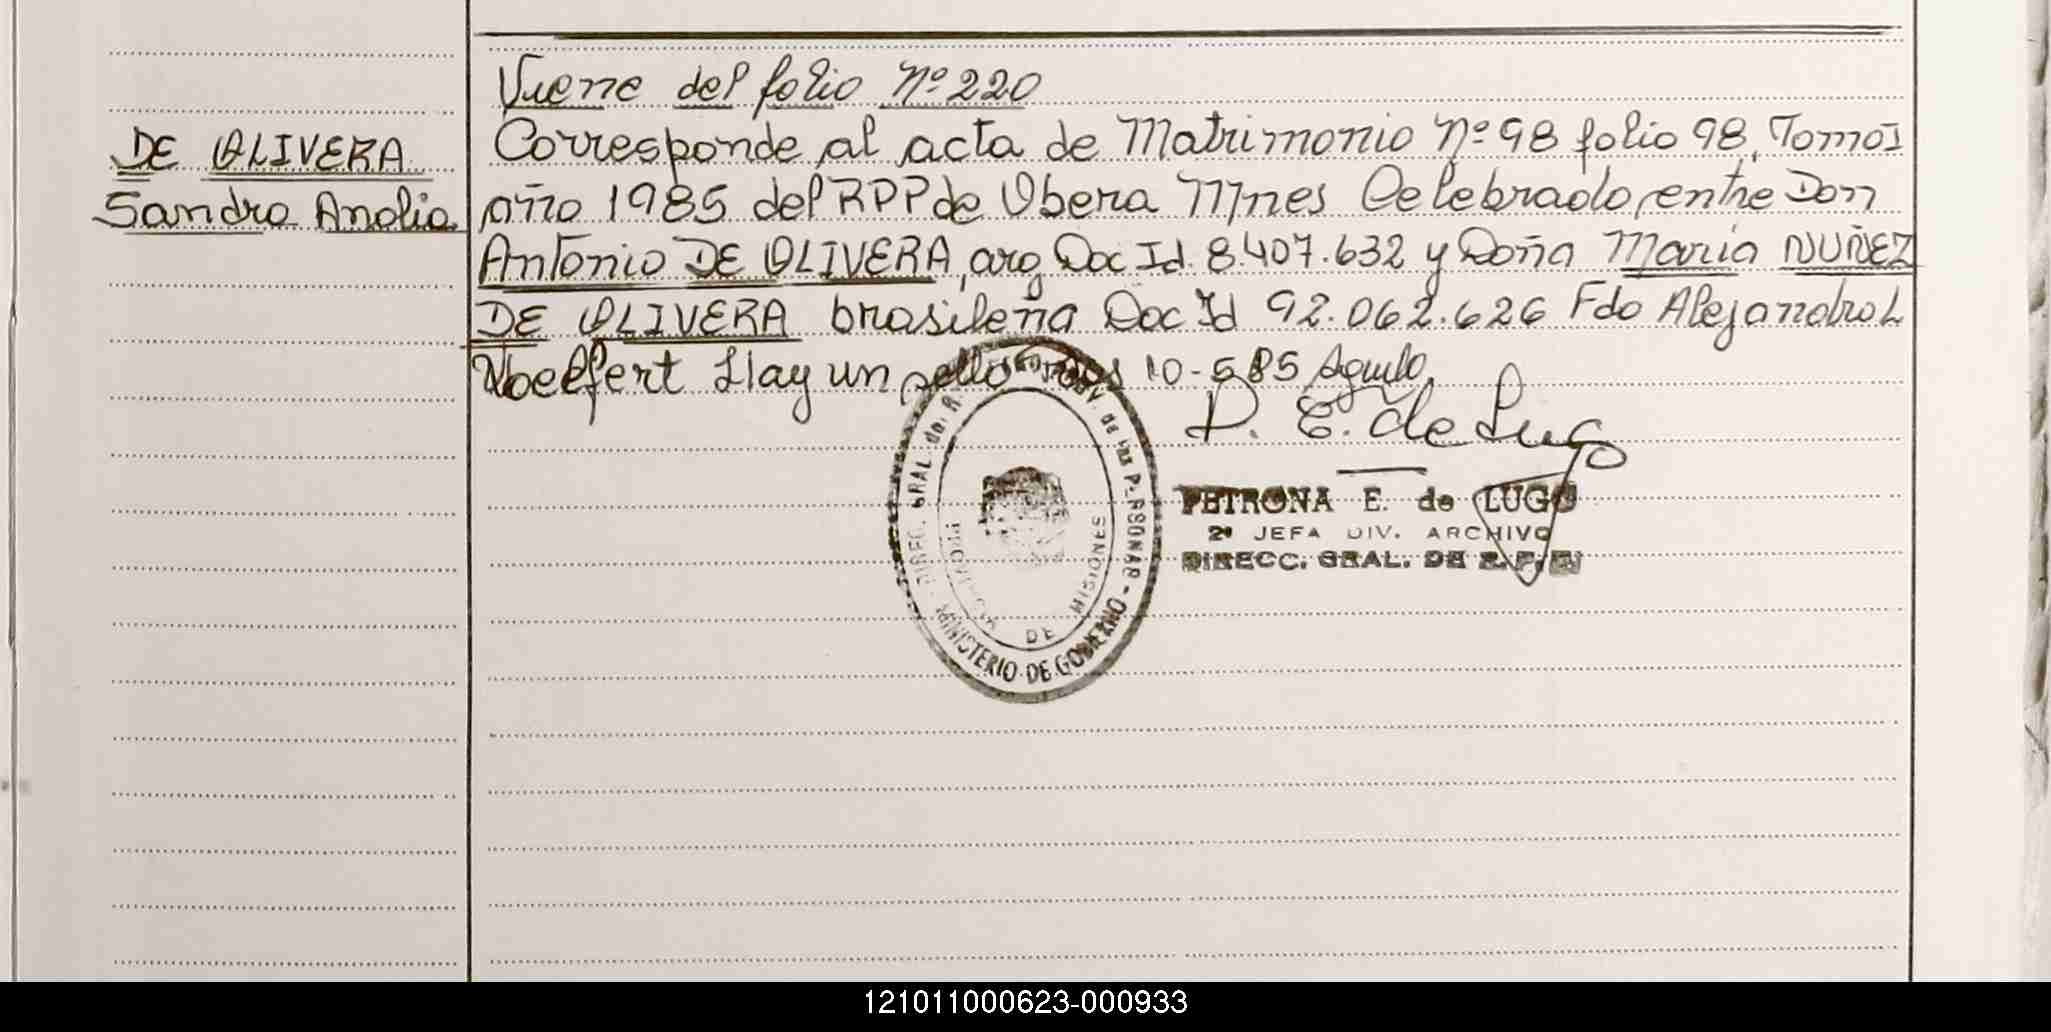 Viene del folio Nº 220
DE OLIVERA
Sandra Analia
Corresponde al acta de Matrimonio Nº 98 folio 98, Tomo I
año 1985 del RPP de Obera Mnes Celebrado, entre Don
Antonio DE OLIVERA, arg Doc Id. 8.407.632 y Doña Maria NUÑEZ
DE OLIVERA brasileña Doc Id 92.062.626 Fdo Alejandro L
Hay un sello 10-5 85
P. E. de Lugo
PETRONA E. de LUGO
2ª JEFA DIV. ARCHIVO
DIRECC. GRAL. DE R. P. P.
DIREC. GRAL del R. de las PERSONAS - MINISTERIO DE GOBIERNO -
PROVINCIA DE MISIONES
121011000623-000933